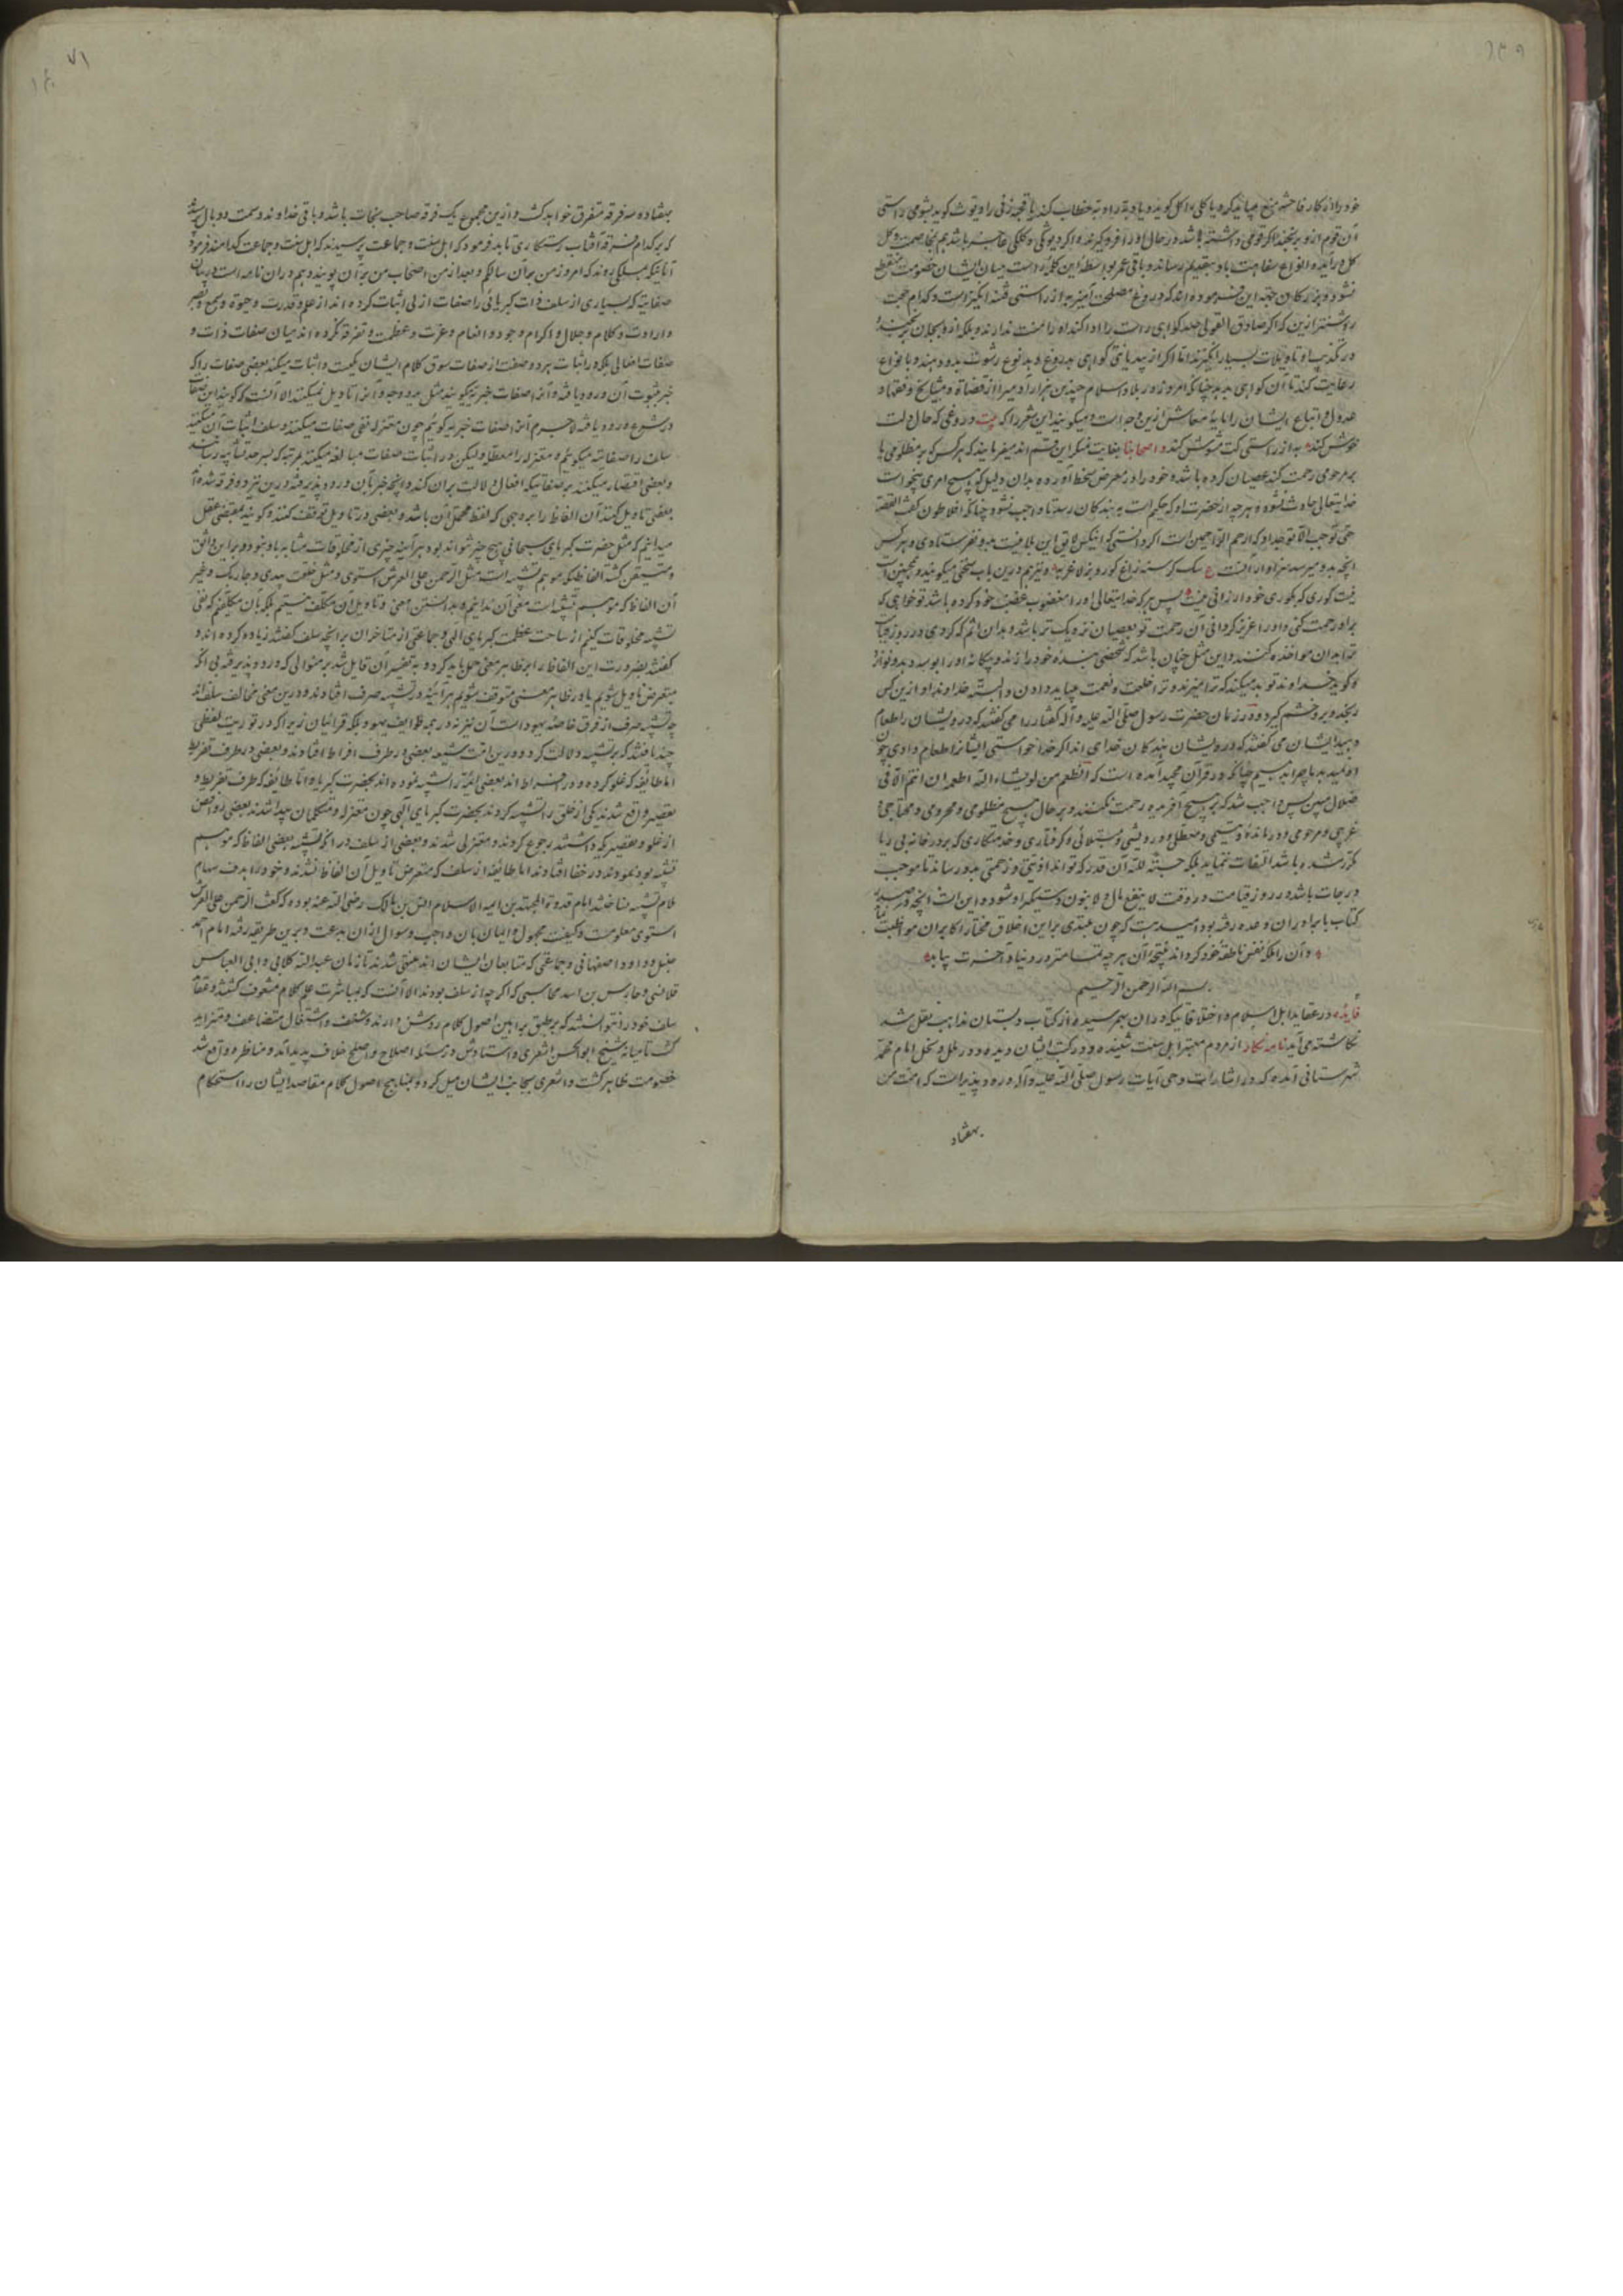 خود را از کار فاحشه منع میباید کرد یا کلی را کل گوید و یا دبه را دبه خطاب کند یا قحبه زنی را دیوث گوید بشومی راستی
آن قوم ازو برنجند اگر قوتی داشته باشد در حال او را فرو گیرند و اگر دیوثکی و کلکی عاجز باشد هم بمخاصمت و کل
کل درآیند و انواع سفاهت باو بتقدیم رساند و باقی عمر بواسطه این کلمه راست میان ایشان خصومت منقطع
نشود و بزرگان جهة این فرموده اند که دروغ مصلحت آمیز به از راستی فتنه انگیز است و کدام حجت
روشنتر ازین که اگر صادق القولی صد گواهی راست را ادا کند او را منت ندارند و بلکه ازو بجان برنجند و
در تکذیب او تاویلات بسیار انگیزند اما اگر از بیدیانتی گواهی بدروغ و بد نوع رشوت بدو دهند و بانواع
رعایت کنند تا آن گواهی بدهد چنانکه امروز در بلاد اسلام چندین هزار آدمی را از قضاة و مشایخ و فقها و
عدول و اتباع ایشان را مایه معاش ازین وجه است و میگویند این شعر را که بیت دروغی که حال دلت
خوش کند به از راستی کت مشوش کند و اصحابنا بغایت منکر این قسم اند میفرمایند که هر کس که بر مظلومی یا
بر مرحومی رحمت کند عصیان کرده باشد و خود را در معرض سخط آورده بدان دلیل که هیچ امری بیخواست
خدایتعالی حادث نشود و هر چه از حضرت او که حکیم است به بندگان رسد تا واجب نشود چنانکه افلاطون گفت القضیه
حتی توجب لا توجد او که ارحم الراحمین است اگر دانستی که آنکس لایق این بلا نیست بدو نفرستادی و هر کس
انچه بدو میرسد سزاوار آنست ع سگ گرسنه زاغ کور و بز لاغر به و نیز هم درین باب سخنی میگویند و همچنین است
نیست کوری که بکوری خود ارزانی نیست پس هر که خدایتعالی او را مغضوب غضب خود کرده باشد تو خواهی که
بر او رحمت کنی و او را عزیز گردانی آن رحمت تو بعصیان نزدیک تر باشد و بدان آثم که کردی در روز قیامت
ترا بدان مواخذه کنند و این مثل چنان باشد که شخصی بنده خود را زند و بیگانه او را بوسه دهد و نوازد
و گوید خداوند تو بد میکند که ترا میزند و ترا خلعت و نعمت میباید دادن و البته خداوند او ازین کس
رنجد و برو خشم گیرد و در زمان حضرت رسول صلی الله علیه و آله کفار را می گفتند که درویشان را طعام
دهید ایشان می گفتند که درویشان بندگان خدای اند اگر خدا خواستی ایشان را طعام دادی چون
او نمیدهد ما چرا بدهیم چنانکه در قرآن مجید آمده است که انطعم من لو یشاء الله اطعمه ان انتم الا فی
ضلال مبین پس واجب شد که بر هیچ آفریده رحمت نکنند و بر حال هیچ مظلومی و محرومی و محتاجی و
غریبی و مرحومی و درمانده و یتیمی و معطلی و درویشی و مبتلائی و گرفتاری و خدمتکاری که بر در خانه بی ریا
مکرر شده باشد التفات ننماید بلکه حسبة لله آن قدر که تواند اذیتی و زحمتی بدو رساند تا موجب
درجات باشد در روز قیامت در وقت لا ینفع مال و لا بنون دستگیر او شود و این است انچه در صدر
کتاب با برادران وعده رفته بود امید هست که چون مبتدی بر این اخلاق مختار اکابران مواظبت نماید
و آن را ملکه نفس ناطقه خود گرداند نتیجه آن هر چه تمامتر در دنیا و آخرت بیابد
بسم الله الرحمن الرحیم
فایده در عقاید اهل اسلام و اختلافاتیکه در آن بهم رسیده از کتاب دبستان مذاهب نقل شد
نگاشته می آید نامه نگار از مردم معتبر اهل سنت شنیده و در کتب ایشان دیده و در ملل و نحل امام محمد
شهرستانی آمده که در اشارات وحی آیات رسول صلی الله علیه و آله ورود پذیر است که امت من
هفتاد
هفتاد و سه فرقه متفرق خواهد گشت و ازین مجموع یک فرقه صاحب نجات باشد و باقی خداوند وسمت و وبال پرسیدند
که بر کدام فرقه آفتاب رستکاری تابد فرمود که اهل سنت و جماعت پرسیدند که اهل سنت و جماعت کدامند فرمود
آنانیکه بمسلکی روند که امروز من بر آن سالکم و بعد از من اصحاب من بر آن پویند و هم در آن نامه است در بیان
صفاتیه که بسیاری از سلف ذات کبریائی را صفات ازلی اثبات کرده اند از علم و قدرت و حیوة و سمع و بصر
و ارادت و کلام و جلال و اکرام و جود و انعام و عزت و عظمت و تفرقه نکرده اند میان صفات ذات و
صفات افعالی بلکه در اثبات هر دو صفت از صفات سوق کلام ایشان یکیست و اثبات میکنند بعضی صفات را که
خبر بثبوت آن ورود یافته و آنرا صفات خبریه گویند مثل ید و وجه و آنرا تاویل نمیکنند الا آنست که گویند این صفات
در شرع ورود یافته لاجرم آنرا صفات خبریه گوئیم چون معتزله نفی صفات میکنند و سلف اثبات آن میکنند
سلف را صفاتیه میگوئیم و معتزله را معطله و لیکن در اثبات صفات مبالغه میکنند بمرتبه که بسرحد تشابه رسانند
و بعضی اقتصار میکنند بر صفاتیکه افعال دلالت بر آن کند و انچه خبر بآن ورود پذیرفته و درین نیز دو فرقه شده اند
بعضی تاویل کنند آن الفاظ را بوجهی که لفظ محتمل آن باشد و بعضی در تاویل توقف کنند و گویند بمقتضی عقل
میدانیم که مثل حضرت کبریای سبحانی هیچ چیز نتواند بود هر آینه چیزی از مخلوقات مشابه باو نبود و بر این واثق
و متیقن گشته الفاظیکه موهم تشبیه است مثل الرحمن علی العرش استوی و مثل خلقت بیدی و جاء ربک و غیر
آن الفاظ که موهم تشبیه است معنی آن ندانیم و بدانستن معنی و تاویل آن مکلف نیستیم بلکه بآن مکلفیم که نفی
تشبیه مخلوقات کنیم از ساحت عظمت کبریای الهی و جماعتی از متاخران بر انچه سلف گفتند زیاده کرده اند و
گفتند بضرورت این الفاظ را بر ظاهر معنی حمل باید کرد و به تفسیر آن قایل شد بر منوالی که ورود پذیرفته بی آنکه
متعرض تاویل شویم یا در ظاهر معنی متوقف شویم هر آینه در تشبیه صرف افتادند و درین معنی مخالف سلف اند
چه تشبیه صرف از فرق خاصه یهود است آن نیز نه در همه طوایف یهود بلکه قرائیان زیرا که در توریت لفظی
چند یافتند که بر تشبیه دلالت کرد و درین امت شیعه بعضی در طرف افراط افتادند و بعضی در طرف تفریط
اما طایفه که غلو کرده و در افراط اند بعضی ائمه را تشبیه نموده اند بحضرت کبریا و اما طایفه که طرف تفریط و
تقصیر واقع شدند یکی از خلق را تشبیه کردند بحضرت کبریای الهی چون معتزله و متکلمان پیدا شدند بعضی روافض
از غلو و تقصیر که داشتند رجوع کردند و معتزلی شدند و بعضی از سلف در آنکه تشبیه بعضی الفاظ که موهم
تشبیه بود نمودند در خفا افتادند اما طایفه از سلف که متعرض تاویل آن الفاظ نشدند و خود را هدف سهام
ملام تشبیه نساختند امام قدوة المجتهدین ائمه الاسلام انس بن مالک رضی الله عنه بوده که گفت الرحمن علی العرش
استوی معلومست و کیفیت مجهول و ایمان بآن واجب و سوال از آن بدعت و برین طریقه رفته امام احمد
حنبل و داود اصفهانی و جماعتی که متابعان ایشان اند منتهی شدند تا زمان عبدالله کلابی و ابی العباس
قلانسی و حارس بن اسد محاسبی که اگر چه از سلف بودند الا آنست که بمباشرت علم کلام مشعوف گشتند و عقاید
سلف خود را توانستند که بر طبق براهین اصول کلام روشن دارند و شغف و اشتغال متضاعف و متزاید
گشت تا میانه شیخ ابوالحسن اشعری و استادش در مسئله اصلاح و اصلح خلاف پدید آمد و مناظره واقع شد
خصومت ظاهر گشت و اشعری بجانب ایشان میل کرد و بمناهج اصول کلام مقاصد ایشان را استحکام